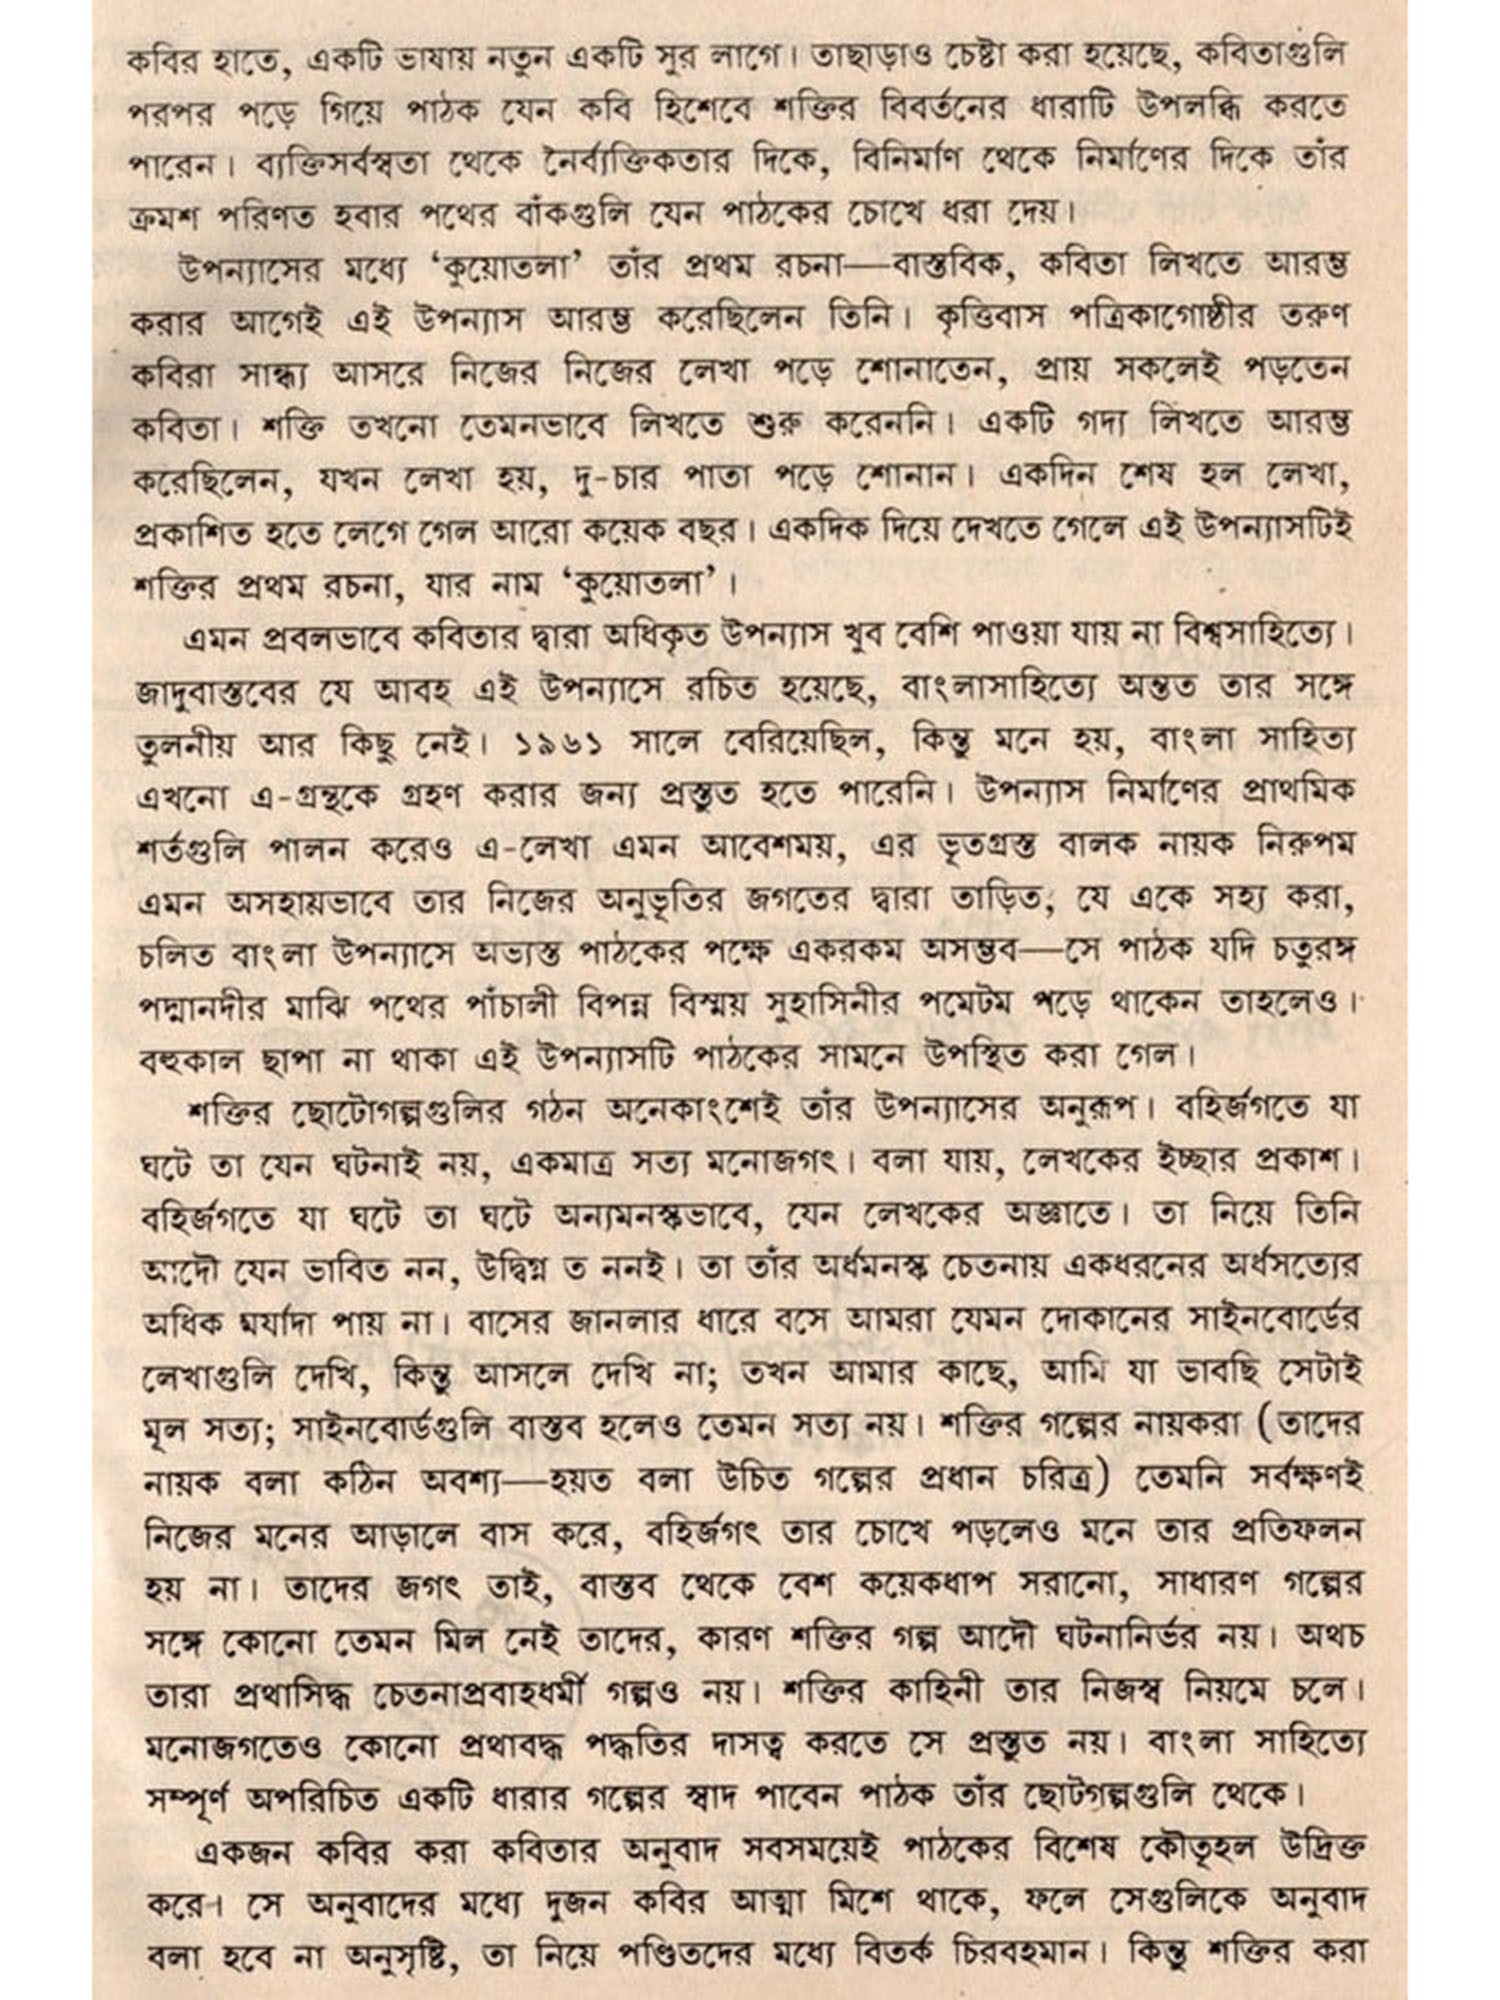 কবির হাতে, একটি ভাষায় নতুন একটি সুর লাগে। তাছাড়াও চেষ্টা করা হয়েছে, কবিতাগুলি
পরপর পড়ে গিয়ে পাঠক যেন কবি হিশেবে শক্তির বিবর্তনের ধারাটি উপলব্ধি করতে
পারেন। ব্যক্তিসর্বস্বতা থেকে নৈর্ব্যক্তিকতার দিকে, বিনির্মাণ থেকে নির্মাণের দিকে তাঁর
ক্রমশ পরিণত হবার পথের বাঁকগুলি যেন পাঠকের চোখে ধরা দেয়।
উপন্যাসের মধ্যে ‘কুয়োতলা’ তাঁর প্রথম রচনা—বাস্তবিক, কবিতা লিখতে আরম্ভ
করার আগেই এই উপন্যাস আরম্ভ করেছিলেন তিনি। কৃত্তিবাস পত্রিকাগোষ্ঠীর তরুণ
কবিরা সান্ধ্য আসরে নিজের নিজের লেখা পড়ে শোনাতেন, প্রায় সকলেই পড়তেন
কবিতা। শক্তি তখনো তেমনভাবে লিখতে শুরু করেননি। একটি গদ্য লিখতে আরম্ভ
করেছিলেন, যখন লেখা হয়, দু-চার পাতা পড়ে শোনান। একদিন শেষ হল লেখা,
প্রকাশিত হতে লেগে গেল আরো কয়েক বছর। একদিক দিয়ে দেখতে গেলে এই উপন্যাসটিই
শক্তির প্রথম রচনা, যার নাম ‘কুয়োতলা’।
এমন প্রবলভাবে কবিতার দ্বারা অধিকৃত উপন্যাস খুব বেশি পাওয়া যায় না বিশ্বসাহিত্যে।
জাদুবাস্তবের যে আবহ এই উপন্যাসে রচিত হয়েছে, বাংলাসাহিত্যে অন্তত তার সঙ্গে
তুলনীয় আর কিছু নেই। ১৯৬১ সালে বেরিয়েছিল, কিন্তু মনে হয়, বাংলা সাহিত্য
এখনো এ-গ্রন্থকে গ্রহণ করার জন্য প্রস্তুত হতে পারেনি। উপন্যাস নির্মাণের প্রাথমিক
শর্তগুলি পালন করেও এ-লেখা এমন আবেশময়, এর ভূতগ্রস্ত বালক নায়ক নিরুপম
এমন অসহায়ভাবে তার নিজের অনুভূতির জগতের দ্বারা তাড়িত, যে একে সহ্য করা,
চলিত বাংলা উপন্যাসে অভ্যস্ত পাঠকের পক্ষে একরকম অসম্ভব—সে পাঠক যদি চতুরঙ্গ
পদ্মানদীর মাঝি পথের পাঁচালী বিপন্ন বিস্ময় সুহাসিনীর পমেটম পড়ে থাকেন তাহলেও।
বহুকাল ছাপা না থাকা এই উপন্যাসটি পাঠকের সামনে উপস্থিত করা গেল।
শক্তির ছোটোগল্পগুলির গঠন অনেকাংশেই তাঁর উপন্যাসের অনুরূপ। বহির্জগতে যা
ঘটে তা যেন ঘটনাই নয়, একমাত্র সত্য মনোজগৎ। বলা যায়, লেখকের ইচ্ছার প্রকাশ।
বহির্জগতে যা ঘটে তা ঘটে অন্যমনস্কভাবে, যেন লেখকের অজ্ঞাতে। তা নিয়ে তিনি
আদৌ যেন ভাবিত নন, উদ্বিগ্ন ত ননই। তা তাঁর অর্ধমনস্ক চেতনায় একধরনের অর্ধসত্যের
অধিক মর্যাদা পায় না। বাসের জানলার ধারে বসে আমরা যেমন দোকানের সাইনবোর্ডের
লেখাগুলি দেখি, কিন্তু আসলে দেখি না; তখন আমার কাছে, আমি যা ভাবছি সেটাই
মূল সত্য; সাইনবোর্ডগুলি বাস্তব হলেও তেমন সত্য নয়। শক্তির গল্পের নায়করা (তাদের
নায়ক বলা কঠিন অবশ্য—হয়ত বলা উচিত গল্পের প্রধান চরিত্র) তেমনি সর্বক্ষণই
নিজের মনের আড়ালে বাস করে, বহির্জগৎ তার চোখে পড়লেও মনে তার প্রতিফলন
হয় না। তাদের জগৎ তাই, বাস্তব থেকে বেশ কয়েকধাপ সরানো, সাধারণ গল্পের
সঙ্গে কোনো তেমন মিল নেই তাদের, কারণ শক্তির গল্প আদৌ ঘটনানির্ভর নয়। অথচ
তারা প্রথাসিদ্ধ চেতনাপ্রবাহধর্মী গল্পও নয়। শক্তির কাহিনী তার নিজস্ব নিয়মে চলে।
মনোজগতেও কোনো প্রথাবদ্ধ পদ্ধতির দাসত্ব করতে সে প্রস্তুত নয়। বাংলা সাহিত্যে
সম্পূর্ণ অপরিচিত একটি ধারার গল্পের স্বাদ পাবেন পাঠক তাঁর ছোটগল্পগুলি থেকে।
একজন কবির করা কবিতার অনুবাদ সবসময়েই পাঠকের বিশেষ কৌতূহল উদ্রিক্ত
করে। সে অনুবাদের মধ্যে দুজন কবির আত্মা মিশে থাকে, ফলে সেগুলিকে অনুবাদ
বলা হবে না অনুসৃষ্টি, তা নিয়ে পণ্ডিতদের মধ্যে বিতর্ক চিরবহমান। কিন্তু শক্তির করা